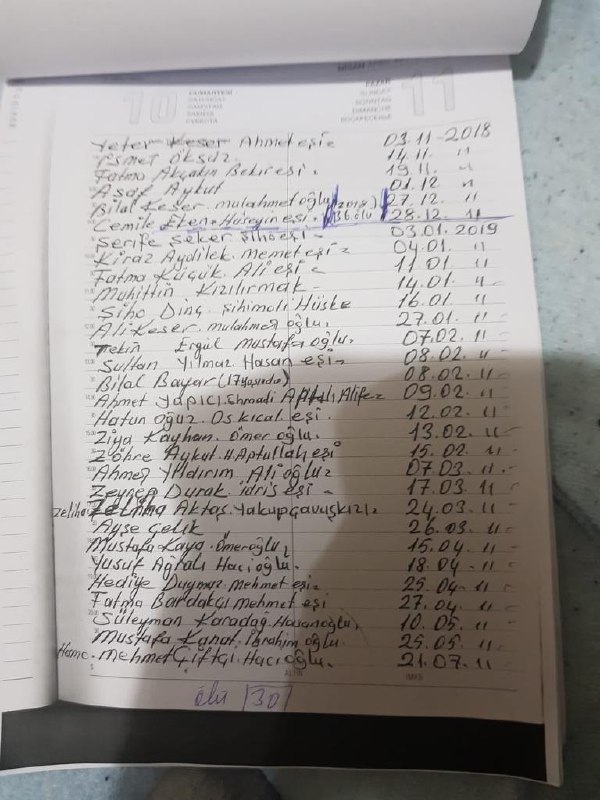 10 CUMARTESİ
PAZAR 11
SUNDAY
SONNTAG
DIMANCHE
Yeter Keser Ahmet eşi 03.11-2018
İsmet Öksüz. 14.11. "
Fatma Akçakın Bekir eşi. 19.11. "
Asaf Aykut 01.12 "
Bilal Keser. mulahmetoğlu (2018) 27.12 "
Cemile Eken Hüseyin eşi. 136 ölü 28.12. 11
Şerife Şeker Siho eşi - 03.01.2019
Kiraz Aydilek. Memet eşi 04.01. "
Fatma Küçük Ali eşi 11.01 "
Muhittin Kızılırmak - 14.01 "
Siho Dinç. Sihimali Hüske 16.01 "
Ali Keser. mulahmet oğlu. 27.01. "
Tekin Ergül Mustafa oğlu. 07.02. "
Sultan Yılmaz. Hasan eşi 08.02. "
Bilal Bayar (17 yaşında) 08.02. 11
Ahmet Yapıcı. Alife 09.02. 11
Hatun Oğuz. Oskıcal eşi. 12.02. 11
Ziya Kayhan. Ömer oğlu. 13.02. 11
Zöhre Aykut. H Aptullah eşi 15.02. 11
Ahmet Yıldırım Ali oğlu 07.03. 11
Zeynep Durak. idris eşi - 17.03. 11
Zeliha Aktaş. Yakupçavuşkızı 24.03. 11
Ayşe Çelik 26.03. 11
Mustafa Kaya. Ömeroğlu 15.04. 11
Yusuf Ağralı Hacıoğlu. 18.04. 11
Hediye Duymaz. Mehmet eşi 25.04.11
Fatma Bardakçı mehmet eşi 27.04. 11
Süleyman Karadağ Hasanoğlu. 10.05. 11
Mustafa Kanat. İbrahim oğlu. 25.05. 11
Hamo. Mehmet Çiftçi. Hacıoğlu. 21.07.11
ALTIN
İMKB
ölü 30